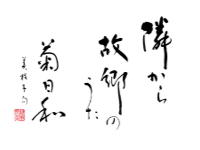 隣から
故郷の
うた
菊日和
美枝子句